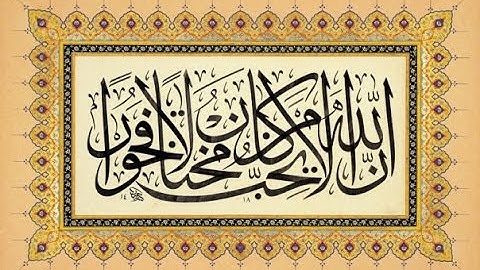 اِنَّ اللهَ لَا يُحِبُّ مَنْ كَانَ مُخْتَالًا فَخُورًا